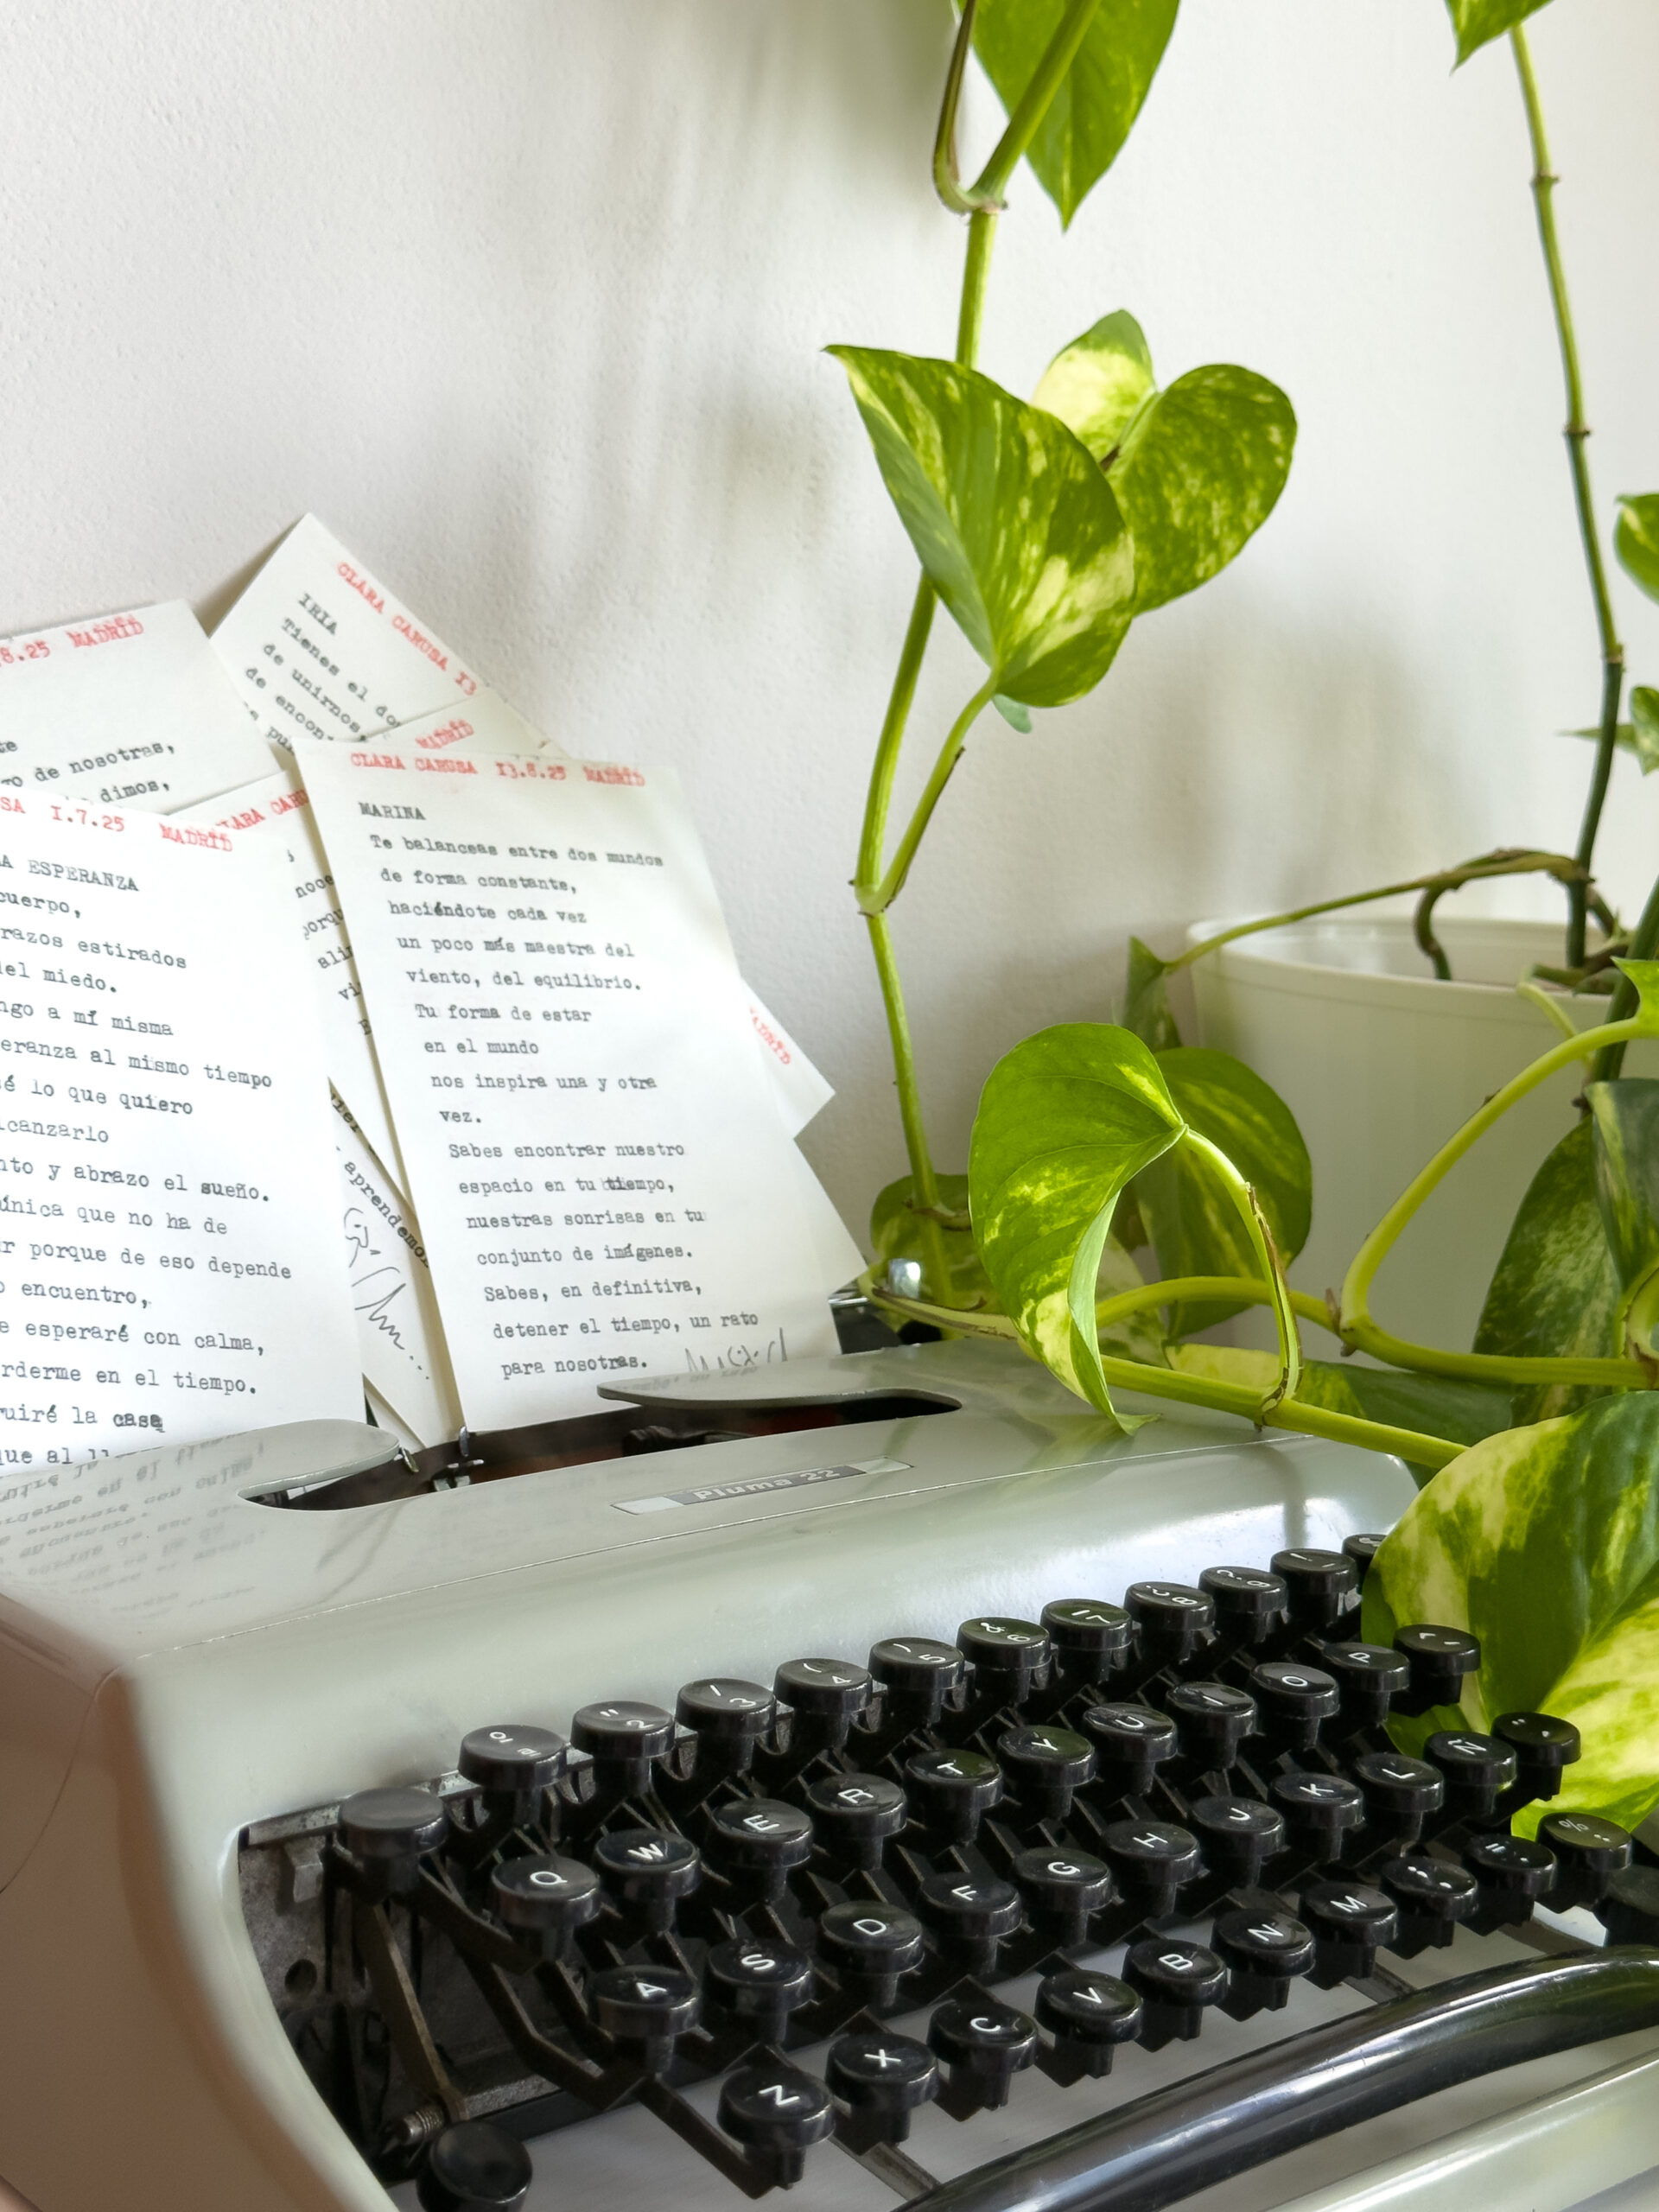 8.25 MADRID
te
ro de nosotras,
dimos,
CLARA CARUSA 13
IRIA
Tienes el
de unirnos
de
MADRID
CLARA
SA 1.7.25 MADRID
A ESPERANZA
cuerpo,
razos estirados
del miedo.
ngo a mí misma
eranza al mismo tiempo
sé lo que quiero
lcanzarlo
nto y abrazo el sueño.
única que no ha de
r porque de eso depende
o encuentro,
e esperaré con calma,
rderme en el tiempo.
ruiré la casa
que al
aprendemos
CLARA CARUSA 13.8.25 MADRID
MARINA
Te balanceas entre dos mundos
de forma constante,
haciéndote cada vez
un poco más maestra del
viento, del equilibrio.
Tu forma de estar
en el mundo
nos inspira una y otra
vez.
Sabes encontrar nuestro
espacio en tu tiempo,
nuestras sonrisas en tu
conjunto de imágenes.
Sabes, en definitiva,
detener el tiempo, un rato
para nosotras.
MADRID
Pluma 22
" 2 / 3 ( 4 ) 5 & 6 7 8
Q W E R T Y U I O P
A S D F G H J K L Ñ
Z X C V B N M